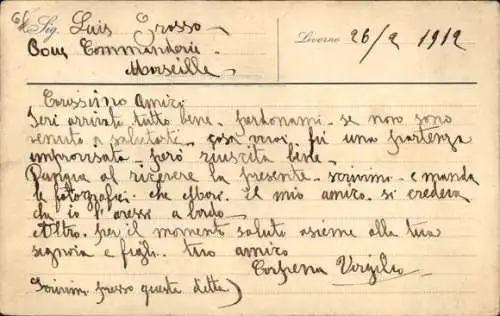 Sig. Luis Grosso
Livorno 26/2 1912
Commanderie
Marseille
Carissimo amico
Ieri arrivato tutto bene. perdonami se non sono
venuto a salutarti cosa vuoi fu una partenza
improvisata però riuscita bene.
al ricevere la presente scrivimi e manda
le fotografie. che il mio amico si credeva
che io l'avessi a bordo
Altro. per il momento saluti assieme alla tua
signora e figli. tuo amico
Virgilio
Scrivimi presso questa ditta)